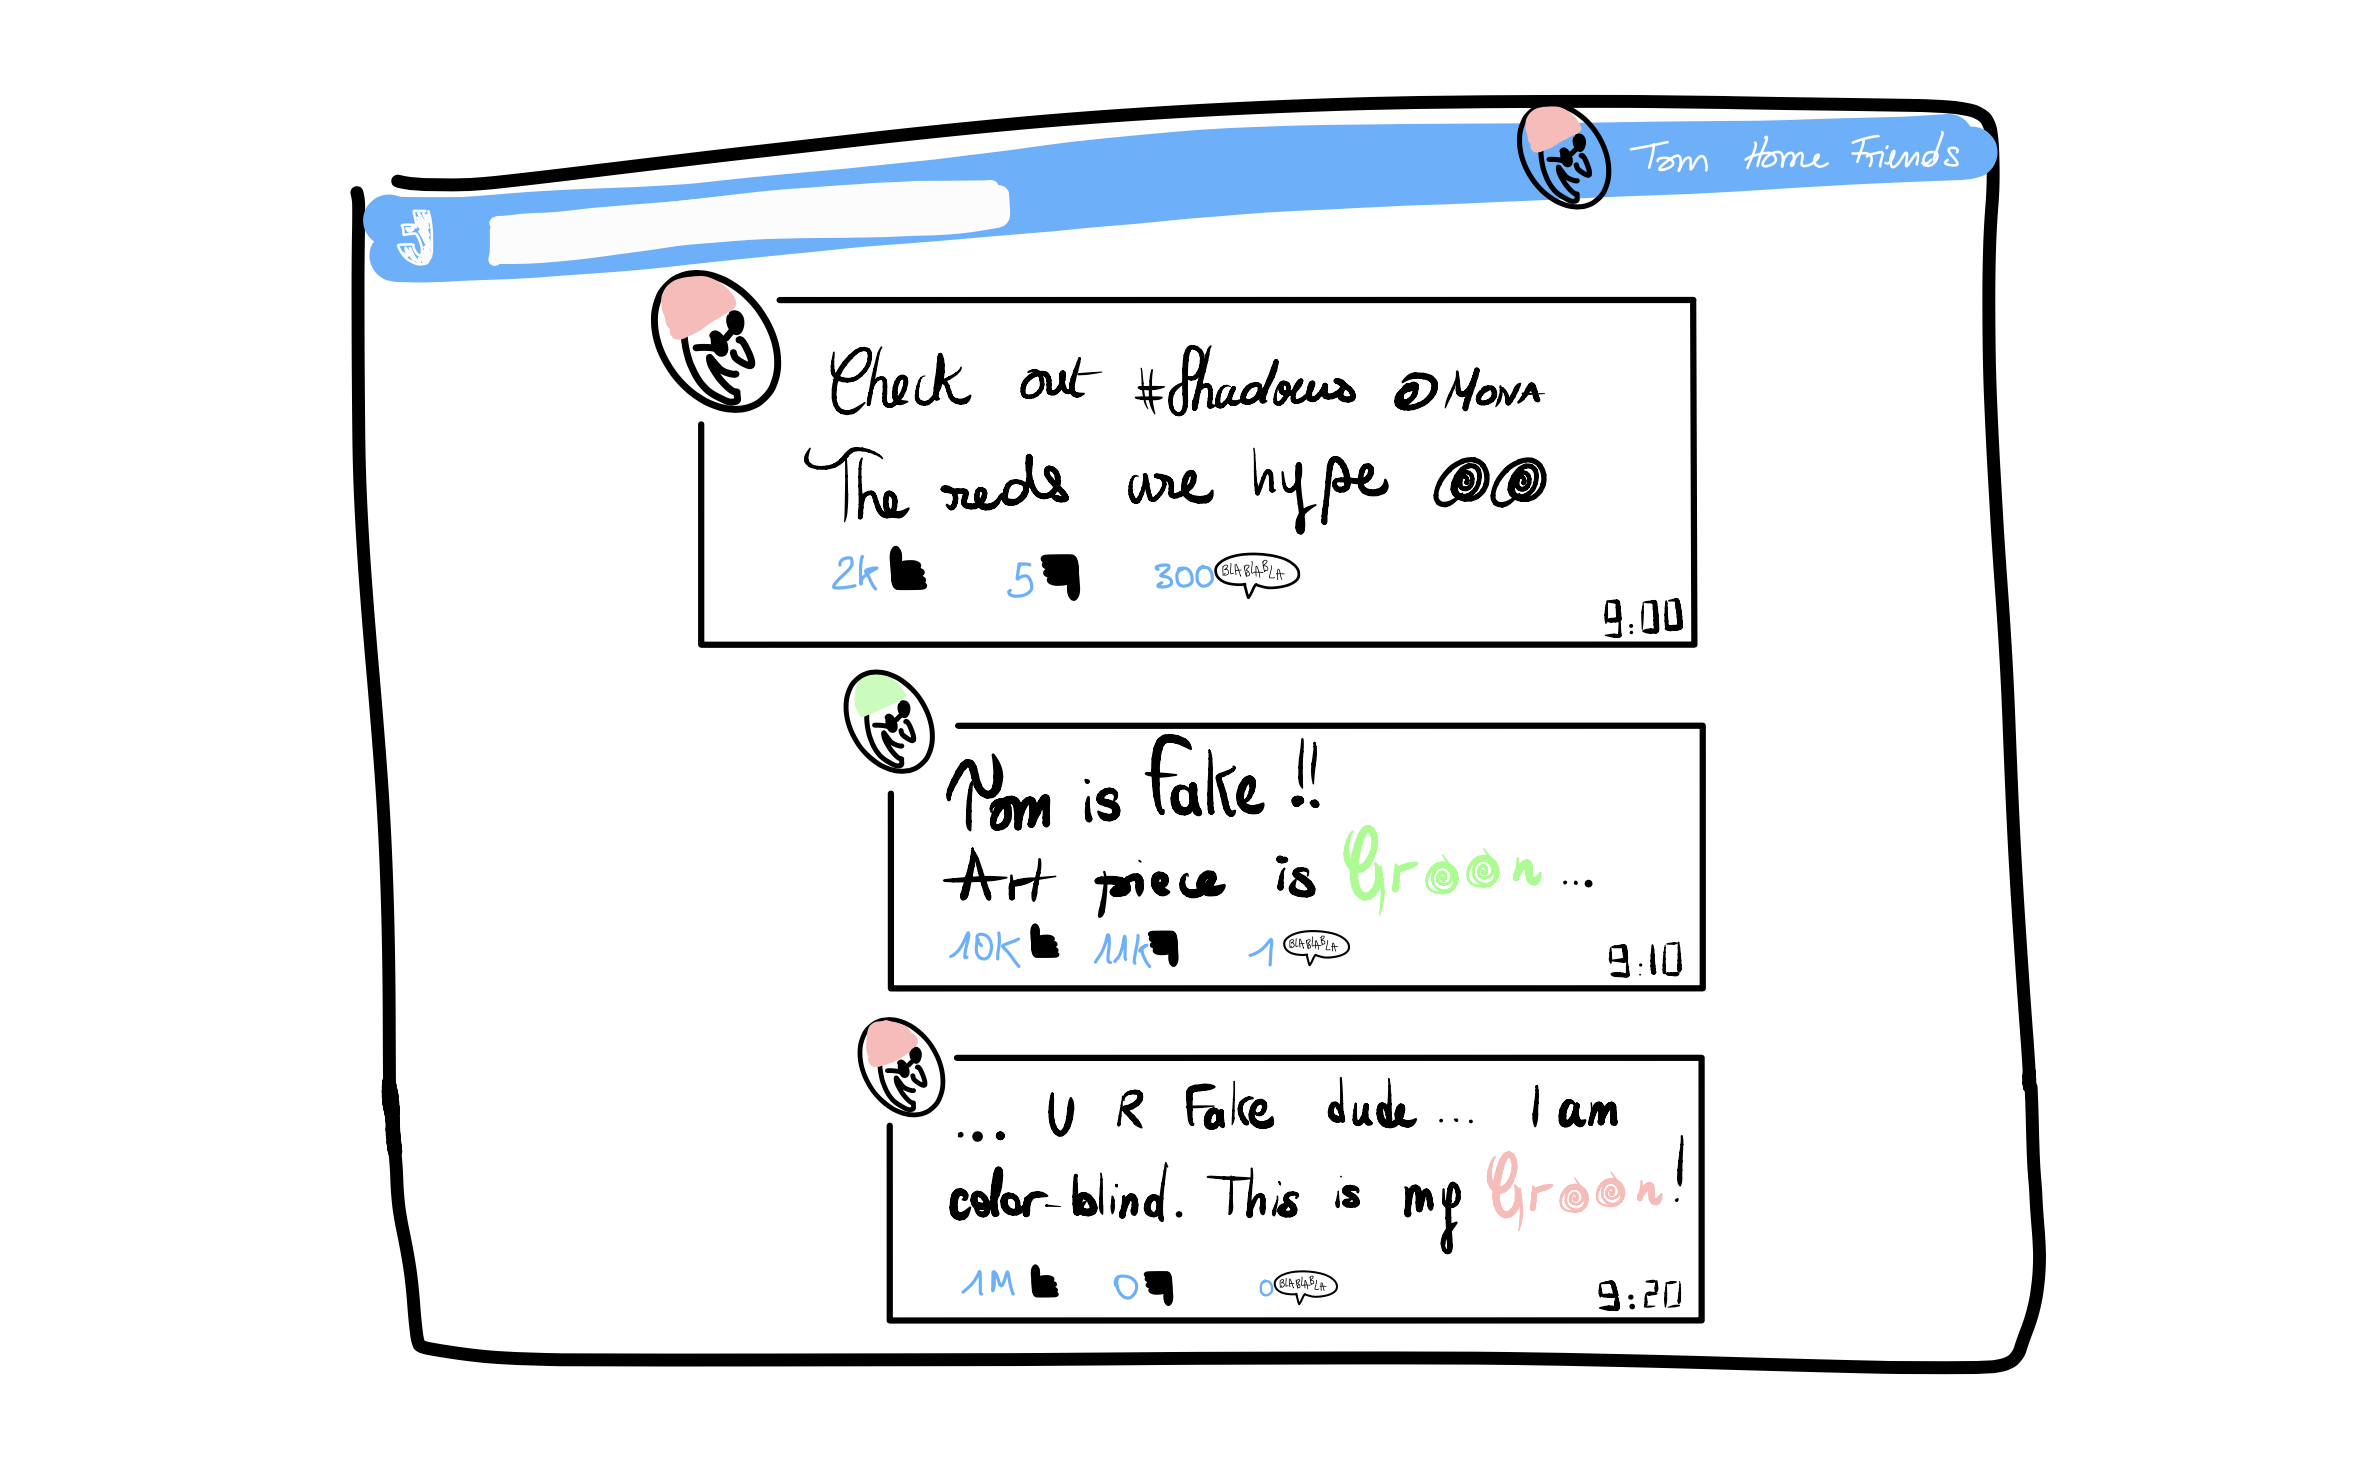 Tom Home Friends
Check out #Shadows @MONA
The reds are hype
2k 5 300 BLABLABLA
9:00
Tom is Fake !!
Art piece is Groon ...
10K 11K 1 BLABLABLA
9:10
... U R Fake dude ... I am
color-blind. This is my Groon!
1M 0 0 BLABLABLA
9:20